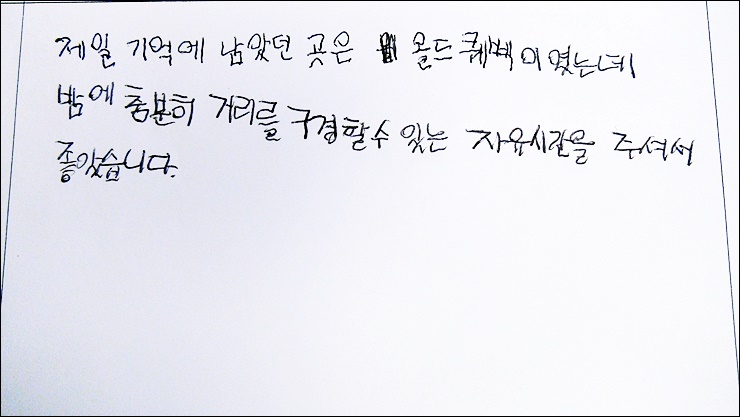 제일 기억에 남았던 곳은 올드퀘벡이였는데
밤에 충분히 거리를 구경할수 있는 자유시간을 주셔서
좋았습니다.